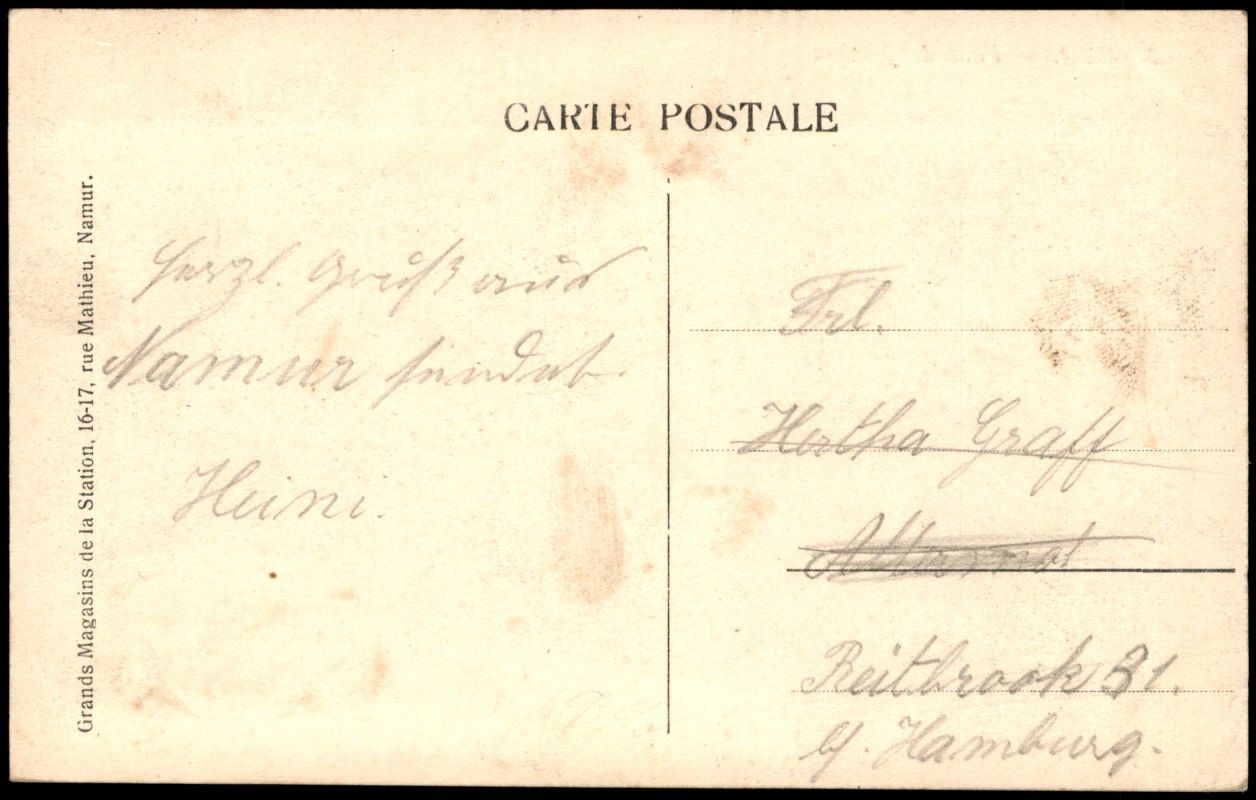 CARTE POSTALE
Grands Magasins de la Station, 16-17, rue Mathieu, Namur.
Herzl. Gruß aus
Namur sendet
Heini.
Frl.
Hertha Graff
Reitbrook 31.
b/. Hamburg.